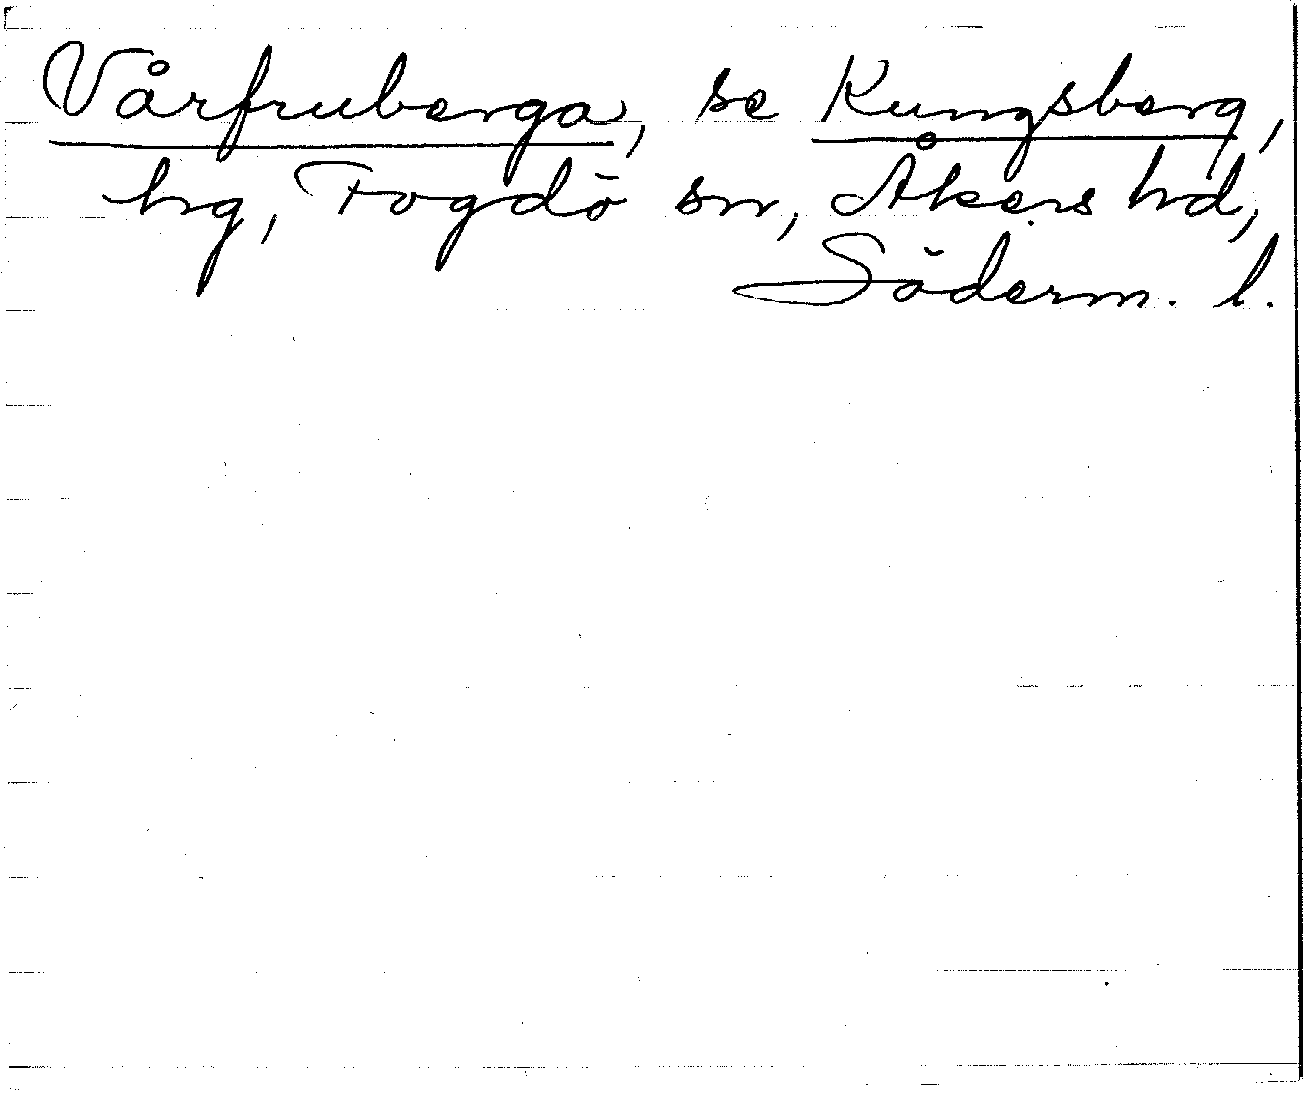 Vårfruberga, se Kungsberg,
hg, Fogdö sn, Åkers hd,
Söderm. l.